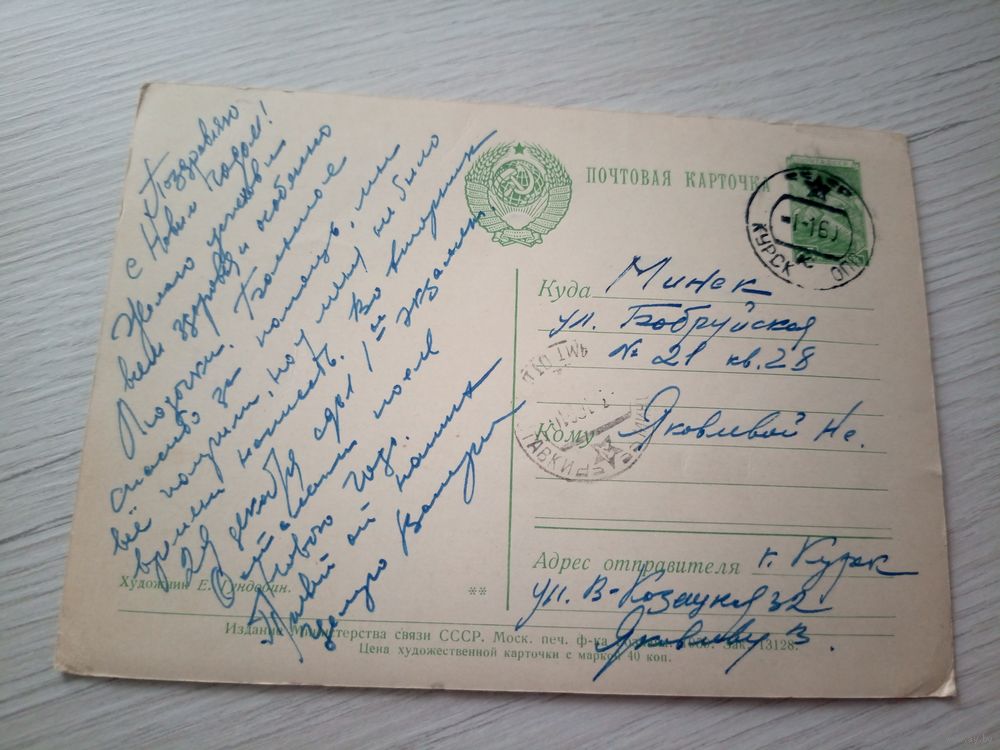 Поздравляю
с Новым Годом!
Желаю успехов и
всем здоровья и особенно
Лидочки. Большое
спасибо за помощь, мы
всё получили, но у меня не было
времени написать. Во вторник
29 декабря сдал 1ый экзамен.
после
Нового года.
Привет от наших
целую Валерий
ПОЧТОВАЯ КАРТОЧКА
КУРСК
Куда Минск
ул. Бобруйская
№ 21 кв. 28
Кому Яковлевой Не.
Адрес отправителя г. Курск
ул. В-Козацкая 32
Яковлеву З.
Художник Е. Гундобин.
**
Издание Министерства связи СССР. Моск. печ. ф-ка Зак. 13128.
Цена художественной карточки с маркой 40 коп.